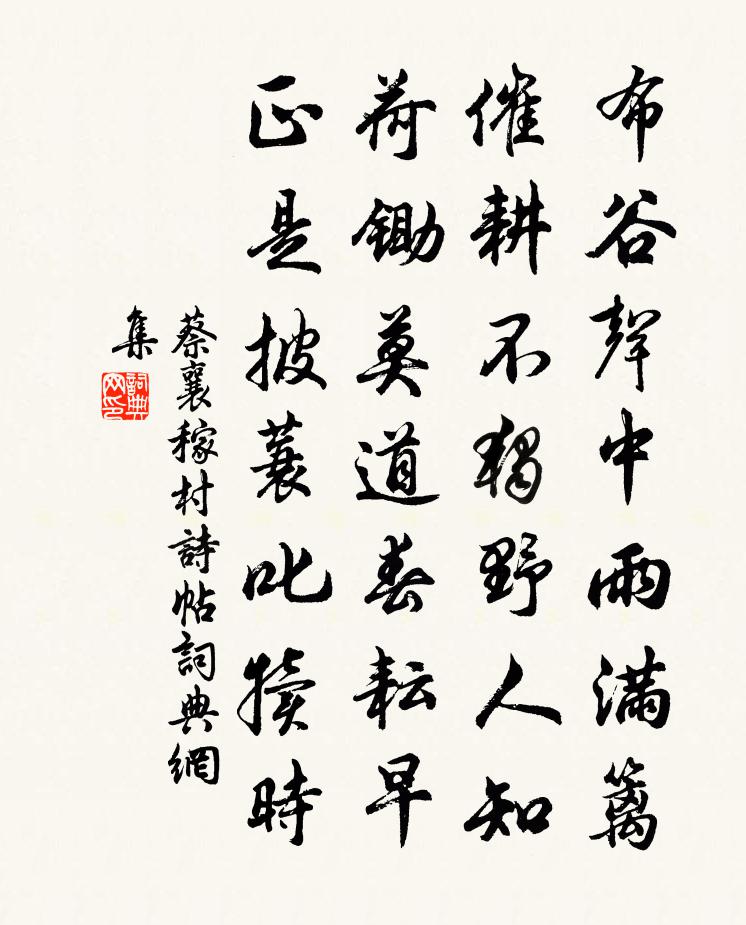 布谷聲中雨滿篱
催耕不獨野人知
荷鋤莫道春耘早
正是披蓑叱犢時
蔡襄稼村詩帖詞典網
集
詞典網印